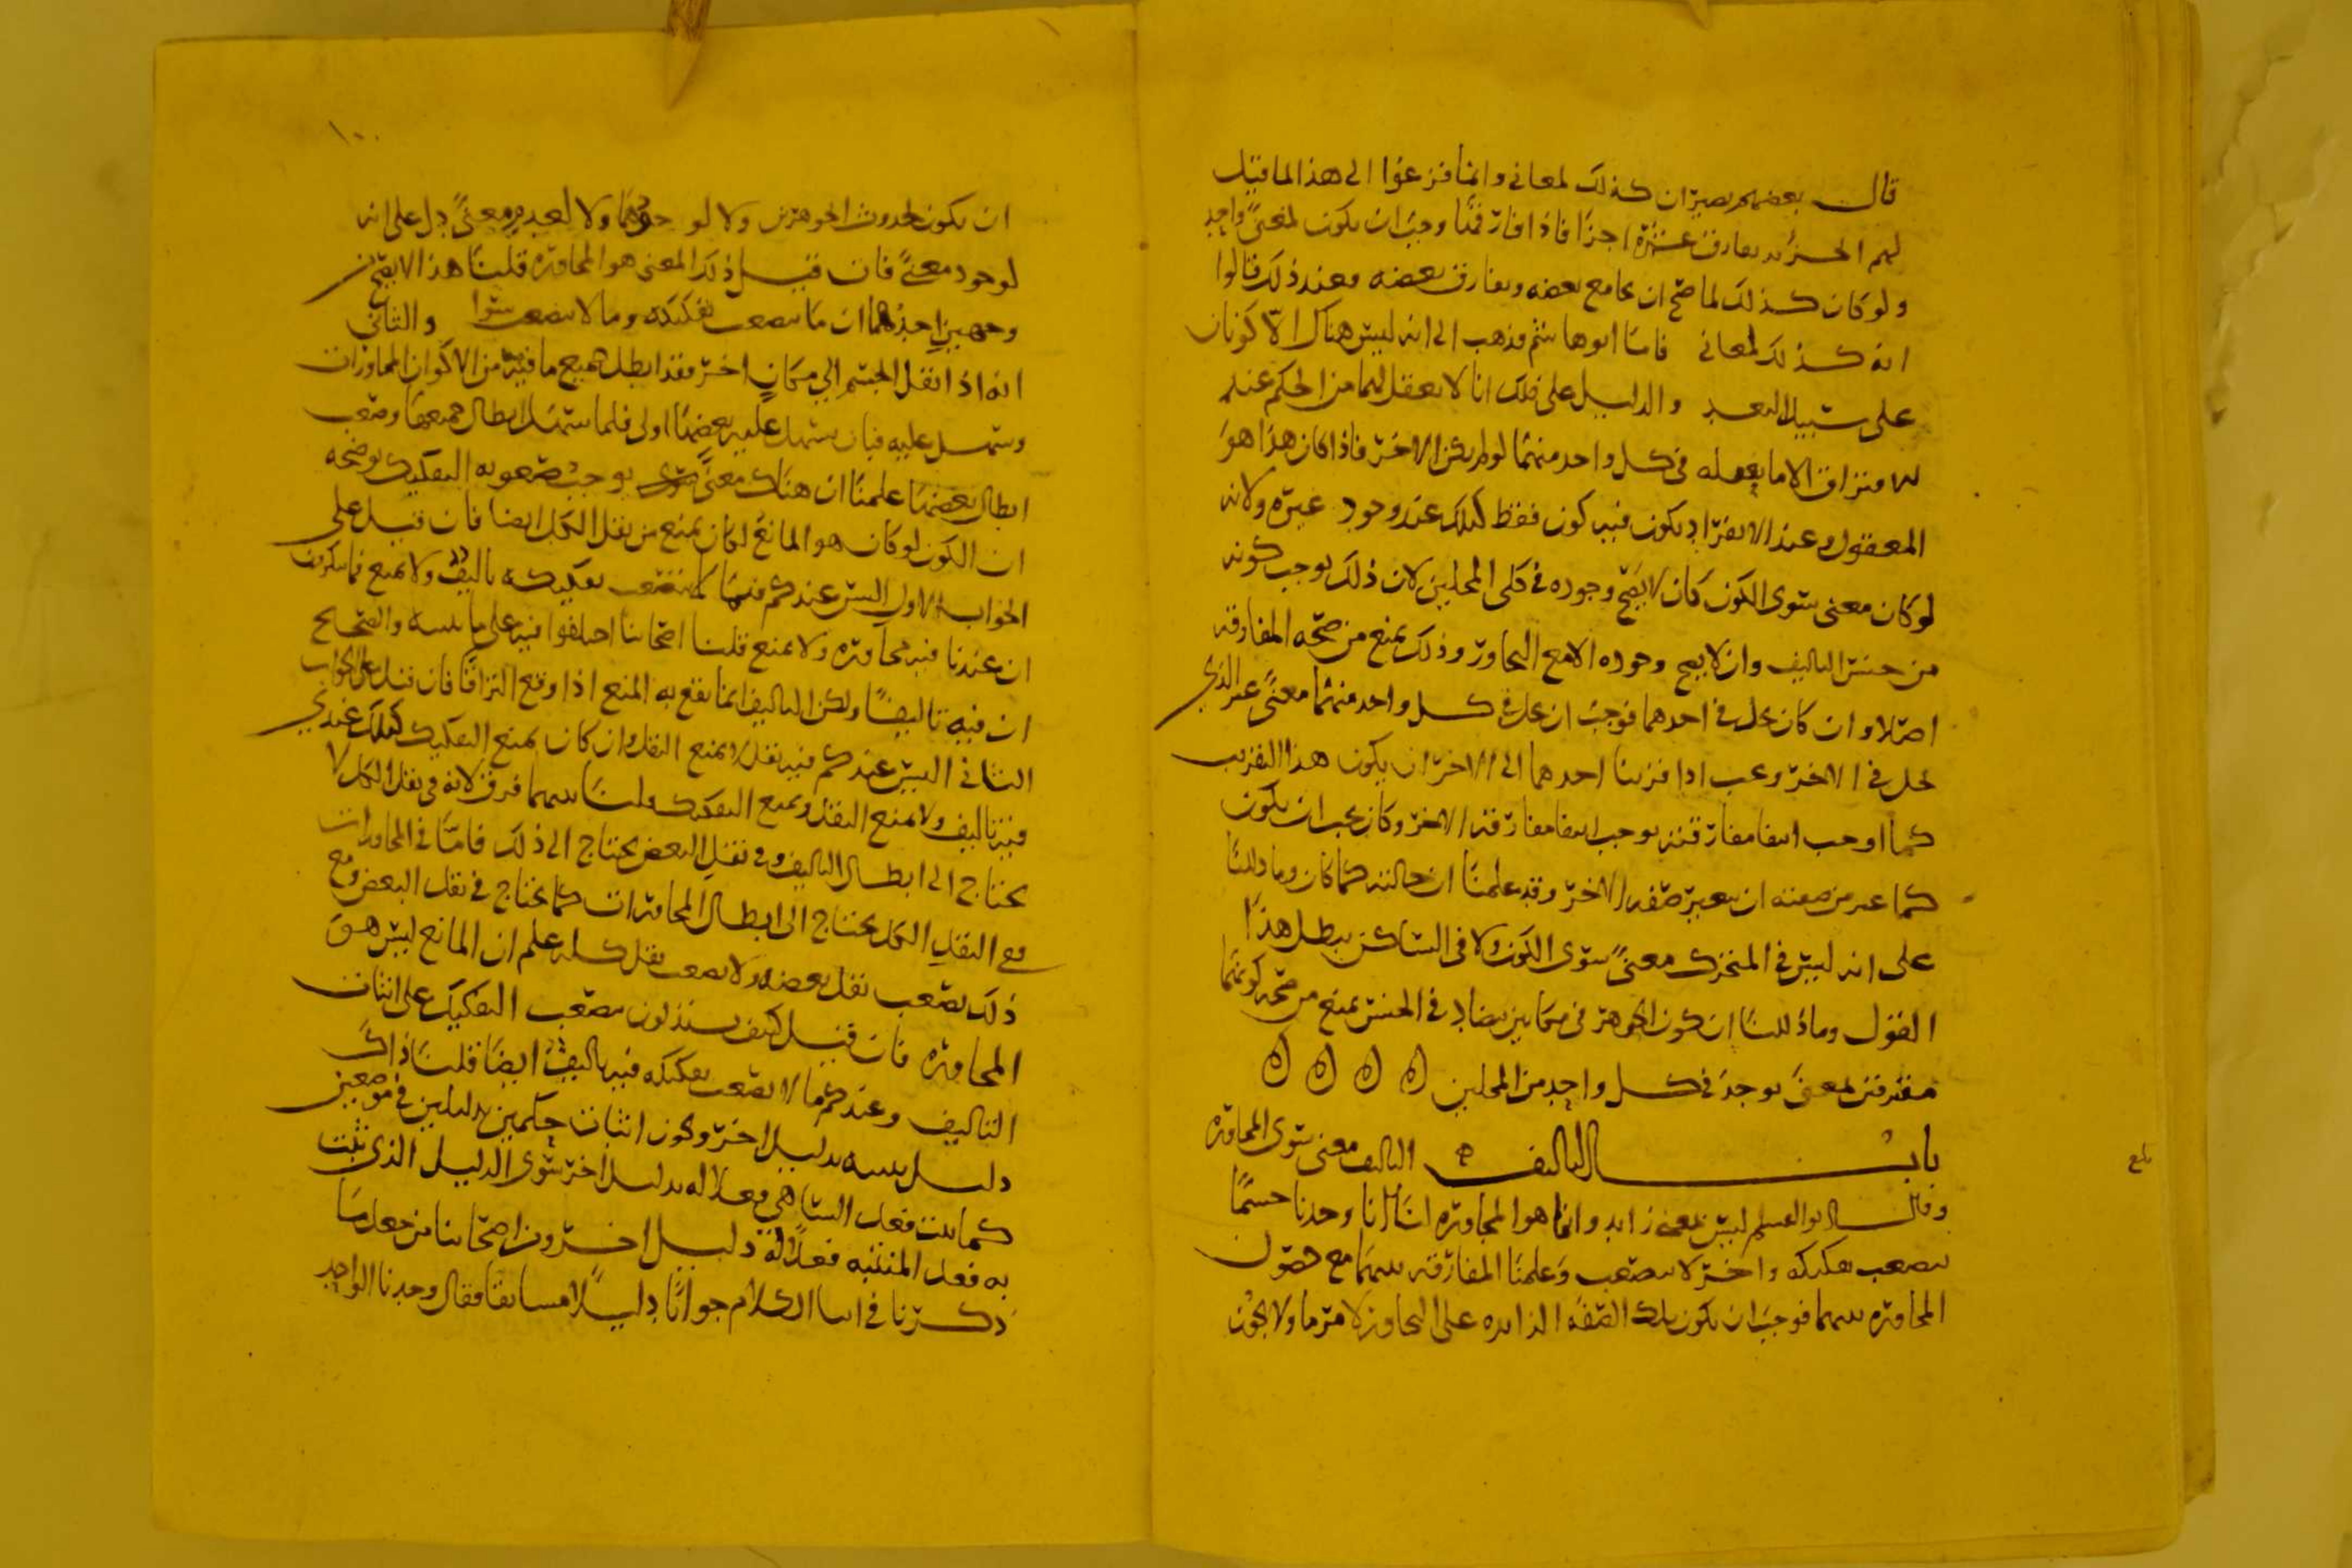 قال بعضهم يصيران كذلك لمعاني وانما فزعوا الى هذا لما قيل
لهم الجزؤ قد يفارق عشرة اجزا فاذا فارقها وجب ان يكون لمعنى واحد
ولو كان كذلك لما صح ان يجامع بعضه ويفارق بعضه وعند ذلك قالوا
انه كذلك لمعاني فاما ابو هاشم فذهب الى انه ليس هناك الا كونان
على سبيل البعد والدليل على ذلك انا لا نعقل لهما من الحكم عند
الافتراق الا ما نعقله في كل واحد منهما لو لم يكن الاخر فاذا كان هذا هو
المعقول وعند الانفراد يكون فيه كون فقط كذلك عند وجود غيره ولانه
لو كان معنى سوى الكون كان لا يصح وجوده في كلى المحلين لان ذلك يوجب كونه
من جنس التاليف وان لا يصح وجوده الا مع التجاور وذلك يمنع من صحة المفارقة
اصلا وان كان يحل في احدهما فوجب ان يحل في كل واحد منهما معنى غير الذي
يحل في الاخر ويجب اذا قربنا احدهما الى الاخر ان يكون هذا التقريب
كما اوجب انتفا مفارقته يوجب انتفا مفارقة الاخر وكان يجب ان يكون
كما غير من صفته ان يغير صفة الاخر وقد علمنا ان حالته كما كان وما دللنا
على انه ليس في المتحرك معنى سوى الكون ولا في الساكن يبطل هذا
القول وما ذللنا ان كون الجوهر في مكانين يتضاد في الجنس يمنع من صحة كونهما
مفترقين لمعنى يوجد في كل واحد من المحلين ه ه ه ه
باب التاليف التاليف معنى سوى المجاورة
وقال ابو القسم ليس بمعنى زايد وانما هو المجاورة لنا انا وجدنا جسما
يصعب تفكيكه واخر لا يصعب وعلمنا المفارقة بينهما مع حصول
المجاورة بينهما فوجب ان يكون تلك الصفة الزايدة على التجاور لامر ما ولا يجوز
بلغ
١٠٠
ان يكون لحدوث الجوهرين ولا لوجودهما ولا لعدم معنى دل على انه
لوجود معنى فان قيل ذلك المعنى هو المجاورة قلنا هذا لا يصح من
وجهين احدهما ان ما يصعب تفكيكه وما لا يصعب سوا والثاني
انه اذا نقل الجسم الى مكان اخر فقد ابطل جميع ما فيه من الاكوان المجاورات
وسهل عليه فبان يسهل عليه بعضها اولى فلما سهل ابطال جميعها وصعب
ابطال بعضها علمنا ان هناك معنى يوجب صعوبة التفكيك يوضحه
ان الكون لو كان هو المانع لكان يمنع من نقل الكل ايضا فان قيل على
الجواب الاول اليس عندكم فيما لا يصعب تفكيكه تاليف ولا يمنع فما ينكرون
ان عندنا فيه مجاورة ولا يمنع قلنا اصحابنا اختلفوا فيه على ما نبينه والصحيح
ان فيه تاليفا ولكن التاليف انما يقع به المنع اذا وقع التزاقا فان قيل على الجواب
الثاني اليس عندكم فيه نقل لا يمنع النقل وان كان يمنع التفكيك كذلك عندي
فيه تاليف ولا يمنع النقل ويمنع التفكيك قلنا بينهما فرق لانه في نقل الكل لا
يحتاج الى ابطال التاليف وفي نقل البعض يحتاج الى ذلك فاما في المجاورات
مع النقل الكل يحتاج الى ابطال المجاورات كما يحتاج في نقل البعض ومع
ذلك يصعب نقل بعضه ولا يصعب نقل كله علم ان المانع ليس هو
المجاورة فان قيل كيف يستدلون بصعب التفكيك على اثبات
التاليف وعندكم ما لا يصعب تفكيكه فيه تاليف ايضا قلنا ذاك
دليل نثبته بدليل اخر ويجوز اثبات حكمين بدليلين في موضعين
كما يثبت فعل الساهي فعلا له بدليل اخر سوى الدليل الذي يثبت
به فعل المنتبه فعلا له دليل اخر ومن اصحابنا من جعل ما
ذكرنا في اثنا الكلام جوابا دليلا مسابقا فقال وجدنا الواحد